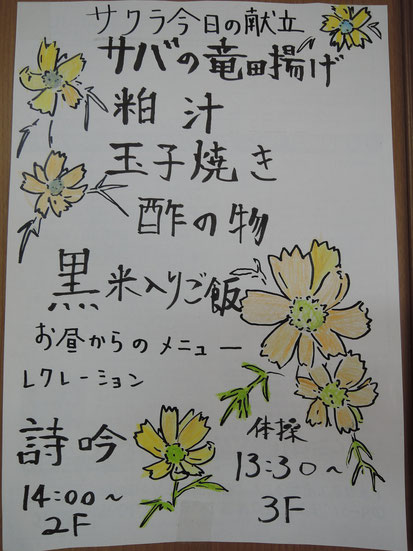 サクラ今日の献立
サバの竜田揚げ
粕汁
玉子焼き
酢の物
黒米入りご飯
お昼からのメニュー
レクレーション
詩吟
14:00~
2F
体操
13:30~
3F